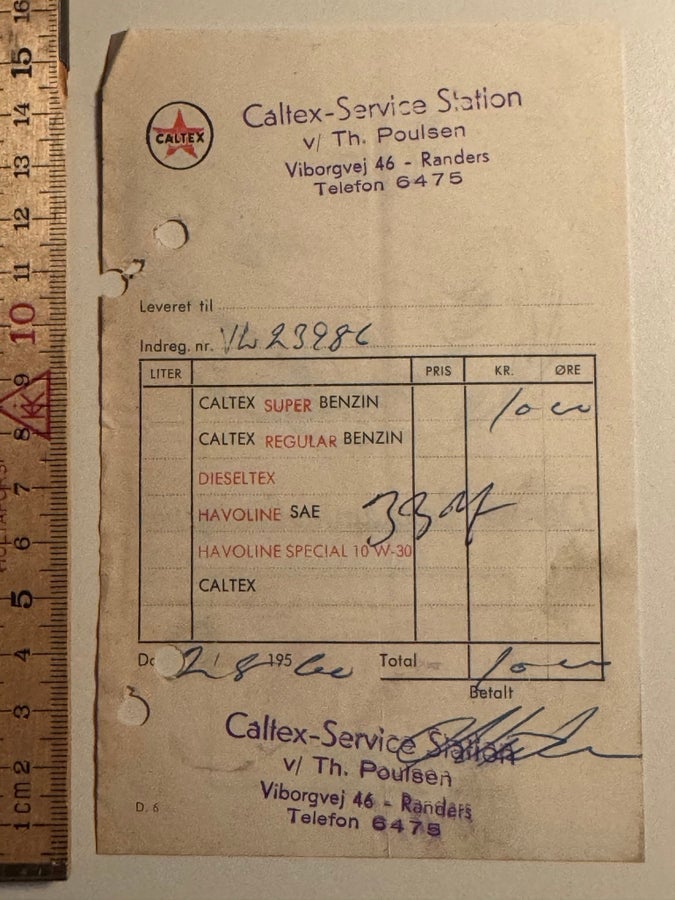 CALTEX
Caltex-Service Station
v/ Th. Poulsen
Viborgvej 46 - Randers
Telefon 6475
Leveret til
Indreg. nr. 23986
LITER PRIS KR. ØRE
CALTEX SUPER BENZIN 10 00
CALTEX REGULAR BENZIN
DIESELTEX
HAVOLINE SAE
HAVOLINE SPECIAL 10 W-30
CALTEX
2/8 195 Total 10 00
Betalt
Caltex-Service Station
v/ Th. Poulsen
Viborgvej 46 - Randers
Telefon 6475
D. 6
16
15
14
13
12
11
10
9
8
7
6
5
4
3
2
1cm